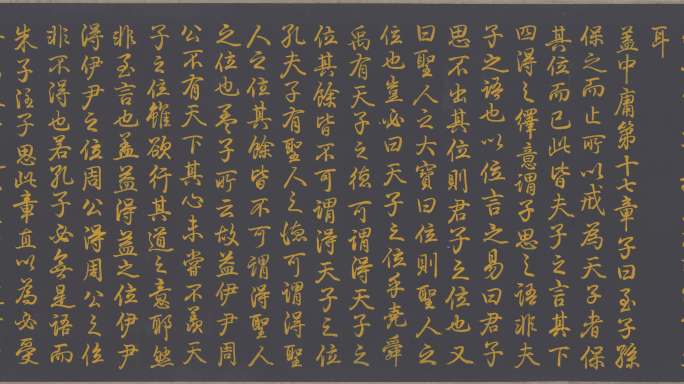 耳
蓋中庸第十七章子曰至子孫
保之而止所以戒為天子者保
其位而已此皆夫子之言其下
四得之繹意謂子思之語非夫
子之語也以位言之易曰君子
思不出其位則君子之位也又
曰聖人之大寶曰位則聖人之
位也豈必曰天子之位乎堯舜
禹有天子之德可謂得天子之
位其餘皆不可謂得天子之位
孔夫子有聖人之德可謂得聖
人之位其餘皆不可謂得聖人
之位也孟子所云故益伊尹周
公不有天下其心未嘗不羨天
子之位雖欲行其道之意耶然
非至言也蓋益得益之位伊尹
得伊尹之位周公得周公之位
非不得也若孔子必無是語而
朱子注子思此章直以為必受